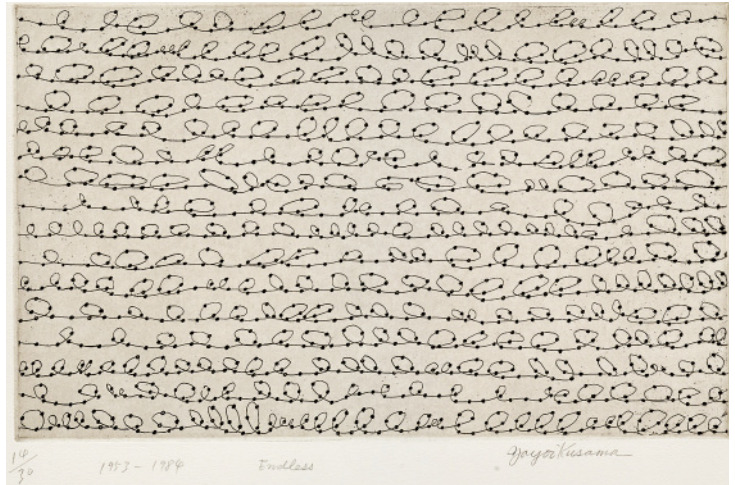 14/30 1953 - 1984 Endless Yayoi Kusama